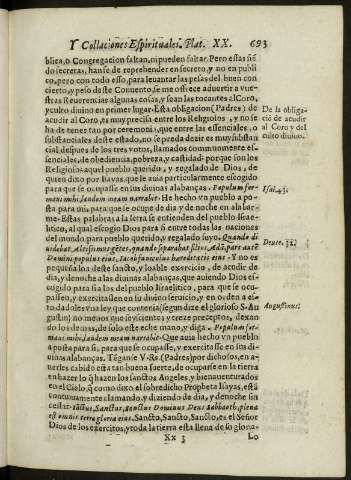 Y Collaciones Espirituales. Plat. XX. 693
blica, o Congregacion faltan, ni pueden faltar. Pero estas siẽ
do secretas, hanse de reprehender en secreto, y no en publi
co, pero con todo esso, para leuantar las pesas del buen con
cierto, y peso de este Conuento, se me ofrece aduertir a vue-
stras Reuerencias algunas cosas, y sean las tocantes al Coro,
y culto diuino en primer lugar. Esta obligacion (Padres) de
acudir al Coro, es muy precisa entre los Religiosos, y no se
ha de tener tan por ceremonia, que entre las essenciales, o
substanciales deste estado, no se pueda dezir es muy substan
cial, despues de los tres votos, llamados communmente es-
senciales, de obediencia, pobreza, y castidad: porque son los
Religiosos aquel pueblo querido, y regalado de Dios, de
quien dixo por Isayas, que le auia particularmente escogido
para que se ocupasse en sus diuinas alabanças. Populum for-
maui mihi, laudem meam narrabit. He hecho vn pueblo a po-
sta para mi, para que se ocupe de dia y de noche en alabar-
me. Estas palabras a la letra se entienden del pueblo Israe-
litico, al qual escogio Dios para si entre todas las naciones
del mundo, para pueblo querido, y regalado suyo. Quando di
uidebat, Altissimus gẽtes, quando separabat filios, Adã, pars autẽ
Domini populus eius, Iacob funiculus hæreditatis eius. Y no es
pequeña loa deste sancto, y loable exercicio, acudir de
dia, y de noche a las diuinas alabanças, que auiendo Dios es-
cogido para si a los del pueblo Israelitico, para que se ocu-
passen, y exercitassen en su diuino seruicio, y en orden a es-
to dadoles vna ley, que contenia (segun dize el glorioso S. Au-
gustin) no menos que seyscientos y treze preceptos, dexan
do los demas, de solo este echè mano, y diga. Populum for-
maui mihi, laudem meam narrabit. Que auia hecho vn pueblo
a posta para si, para que se ocupasse, y exercitasse en sus di-
uinas alabanças. Tẽganse V. Rs. (Padres) por dichosos, en a-
uerles cabido esta tan buena suerte, de ocuparse en la tierra
en hazer lo q̃ hazen los sanctos Angeles, y bienauenturados
en el Cielo, q̃ como dixo el sobredicho Propheta Isayas, està
continuamente clamando, y diziendo de dia, y denoche sin
cessar: Sãctus, Sanctus, Sanctus Dominus Deus Sabbaoth, plena
est omnis terra gloria eius, Sancto, Sancto, Sancto, es el Señor
Dios de los exercitos, y toda la tierra esta llena de su gloria.
Xx 3 Lo
De la obliga
ciõ de acudir
al Coro y del
culto diuino.
Isai. 43.
Deute. 32.
Augustinus.